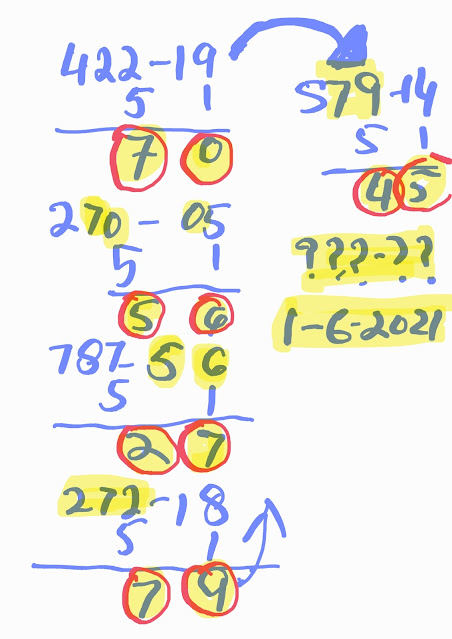 422-19
5 1
7 0
270-05
5 1
5 6
787-56
5 1
2 7
272-18
5 1
7 9
579-14
5 1
4 5
???-??
1-6-2021